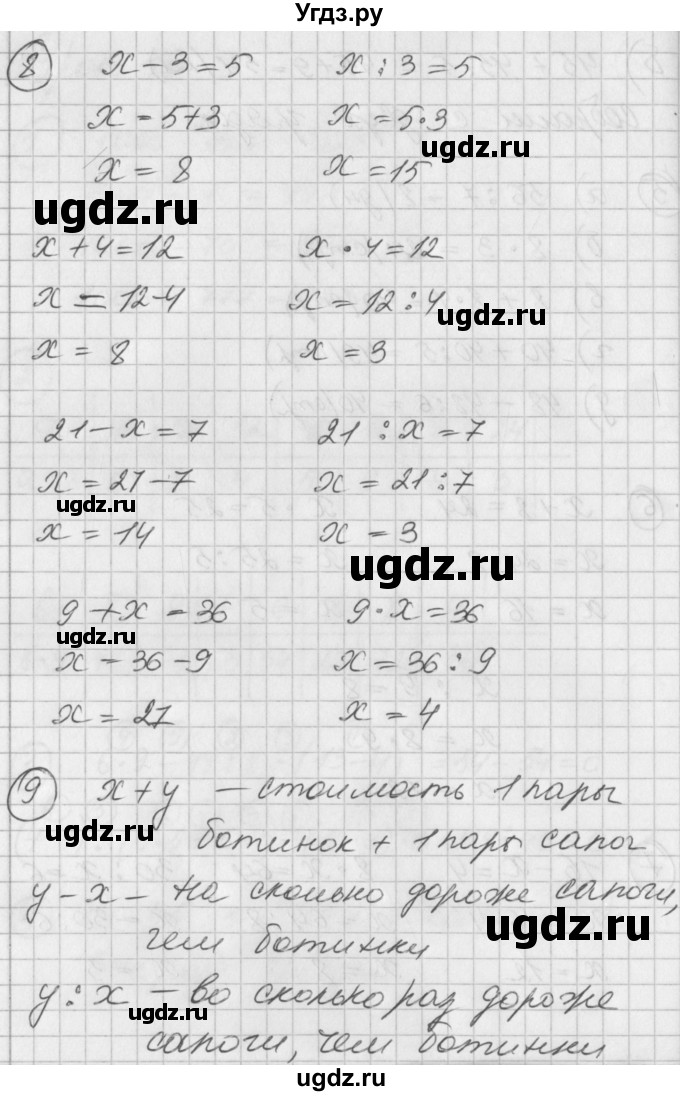 Угдз.ру
8 x − 3 = 5 x : 3 = 5
x = 5+3 x = 5·3
x = 8 x = 15
ugdz.ru
ugdz.ru
x + 4 = 12 x · 4 = 12
x = 12-4 x = 12 : 4
ugdz.ru
x = 8 x = 3
21 − x = 7 21 : x = 7
x = 21 − 7 x = 21 : 7
ugdz.ru
x = 14 x = 3
ugdz.ru
9 + x = 36 9 · x = 36
ugdz.ru
x = 36 − 9 x = 36 : 9
x = 27 x = 4
9 x + y — стоимость 1 пары
ugdz.ru
ботинок + 1 пары сапог
y − x — на сколько дороже сапоги,
ugdz.ru
чем ботинки
y : x — во сколько раз дороже
ugdz.ru
сапоги, чем ботинки
ugdz.ru